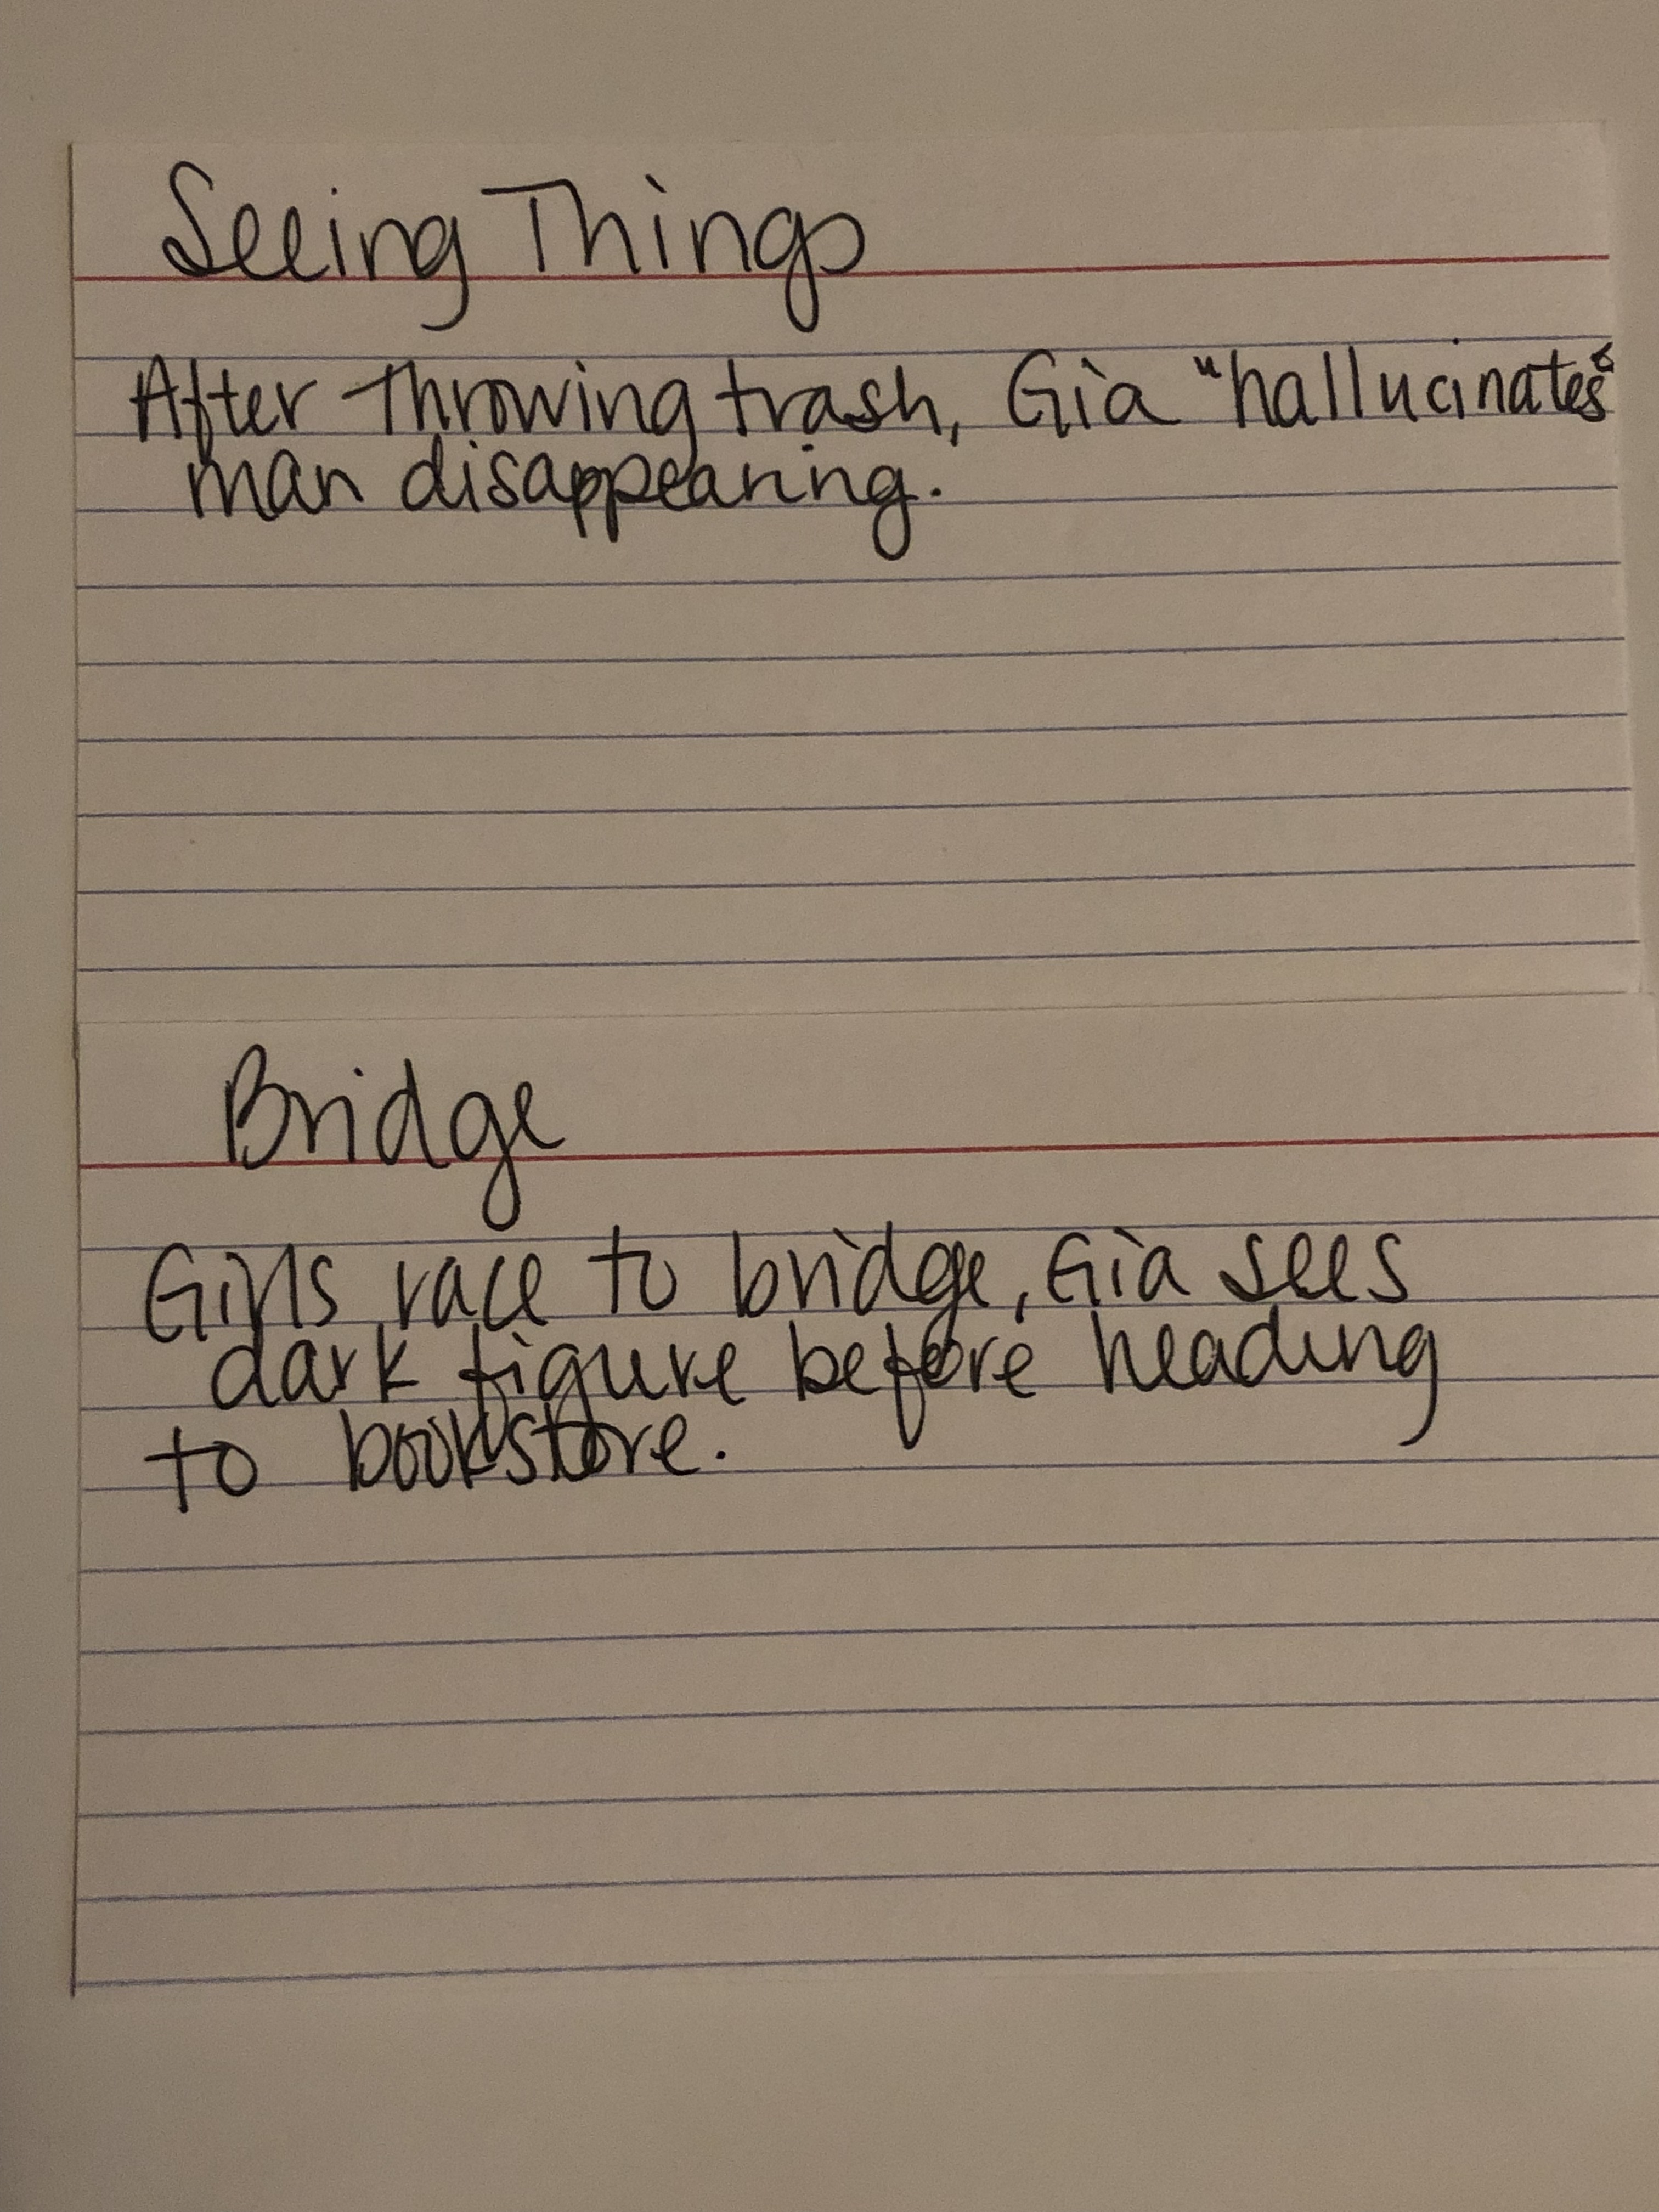 Seeing Things
After throwing trash, Gia "hallucinates"
man disappearing.
Bridge
Girls race to bridge, Gia sees
dark figure before heading
to bookstore.